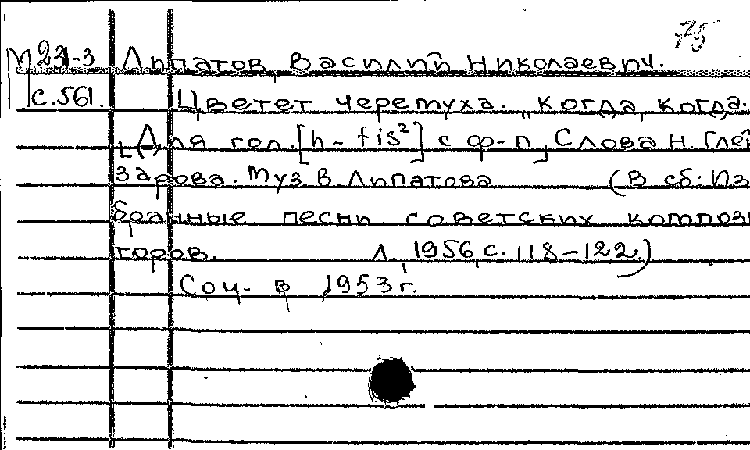 75
М 23-3 Липатов, Василий Николаевич.
с.561. Цветет черемуха. "Когда, когда.
[Для гол. [h - fis²] с ф-п] Слова Н. Глей
зарова. Муз. В. Липатова (В сб: Из
бранные песни советских компози
торов. Л., 1956, с. 118-122.)
Соч. в 1953 г.